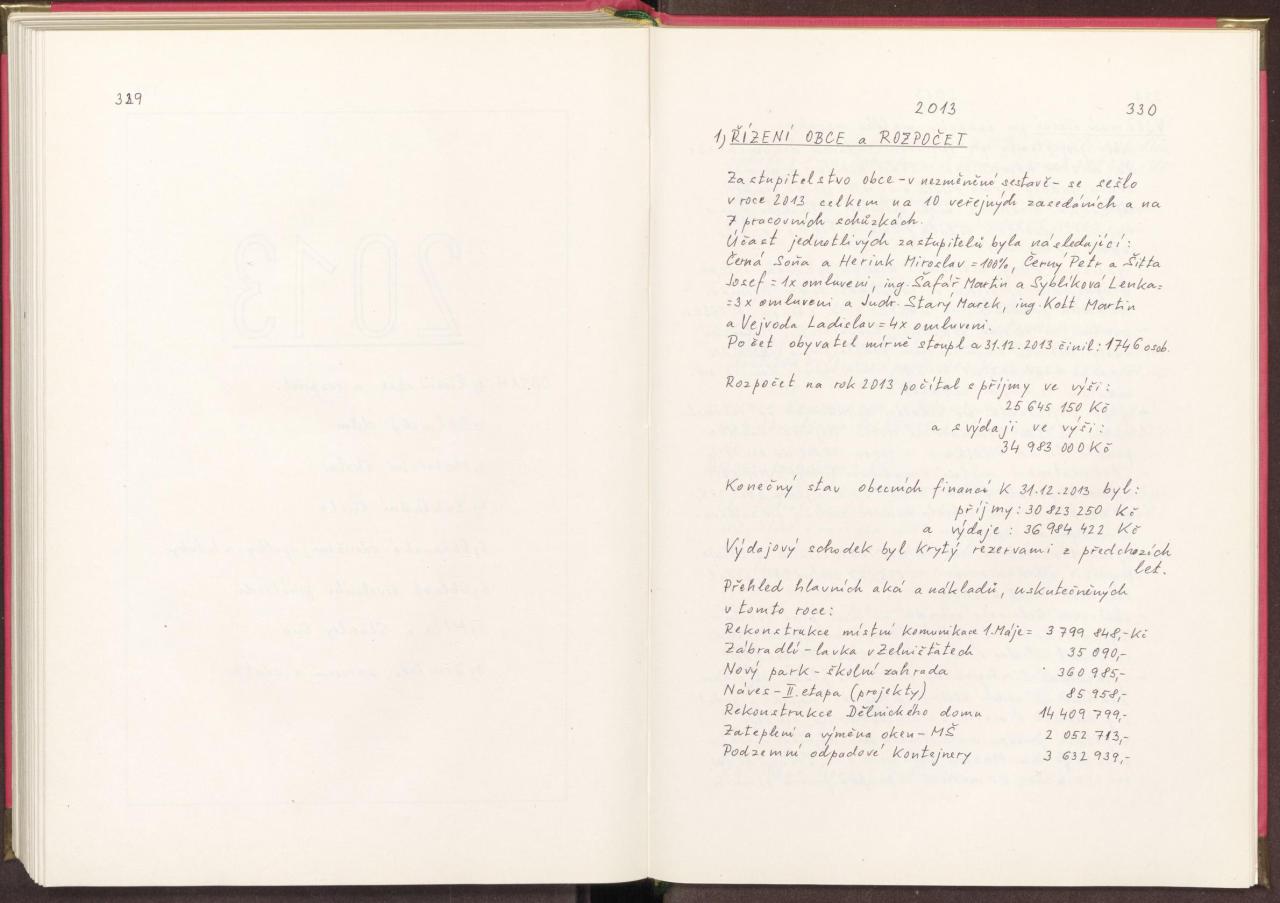 329
2013 330
1) ŘÍZENÍ OBCE a ROZPOČET
Zastupitelstvo obce - v nezměněné sestavě - se sešlo
v roce 2013 celkem na 10 veřejných zasedáních a na
7 pracovních schůzkách.
Účast jednotlivých zastupitelů byla následující:
Černá Soňa a Herink Miroslav = 100%, Černý Petr a Šitta
Josef = 1x omluveni, ing. Šafář Martin a Syblíková Lenka =
= 3x omluveni a Judr. Starý Marek, ing. Kott Martin
a Vejvoda Ladislav = 4x omluveni.
Počet obyvatel mírně stoupl a 31.12.2013 činil: 1746 osob.
Rozpočet na rok 2013 počítal s příjmy ve výši:
25 645 150 Kč
a s výdaji ve výši:
34 983 000 Kč
Konečný stav obecních financí K 31.12.2013 byl:
příjmy: 30 823 250 Kč
a výdaje: 36 984 422 Kč
Výdajový schodek byl krytý rezervami z předchozích
let.
Přehled hlavních akcí a nákladů, uskutečněných
v tomto roce:
Rekonstrukce místní komunikace 1. Máje = 3 799 848,- Kč
Zábradlí - lavka v Zelništátech 35 090,-
Nový park - školní zahrada 360 985,-
Náves - II. etapa (projekty) 85 958,-
Rekonstrukce Dělnického domu 14 409 799,-
Zateplení a výměna oken - MŠ 2 052 713,-
Podzemní odpadové Kontejnery 3 632 939,-